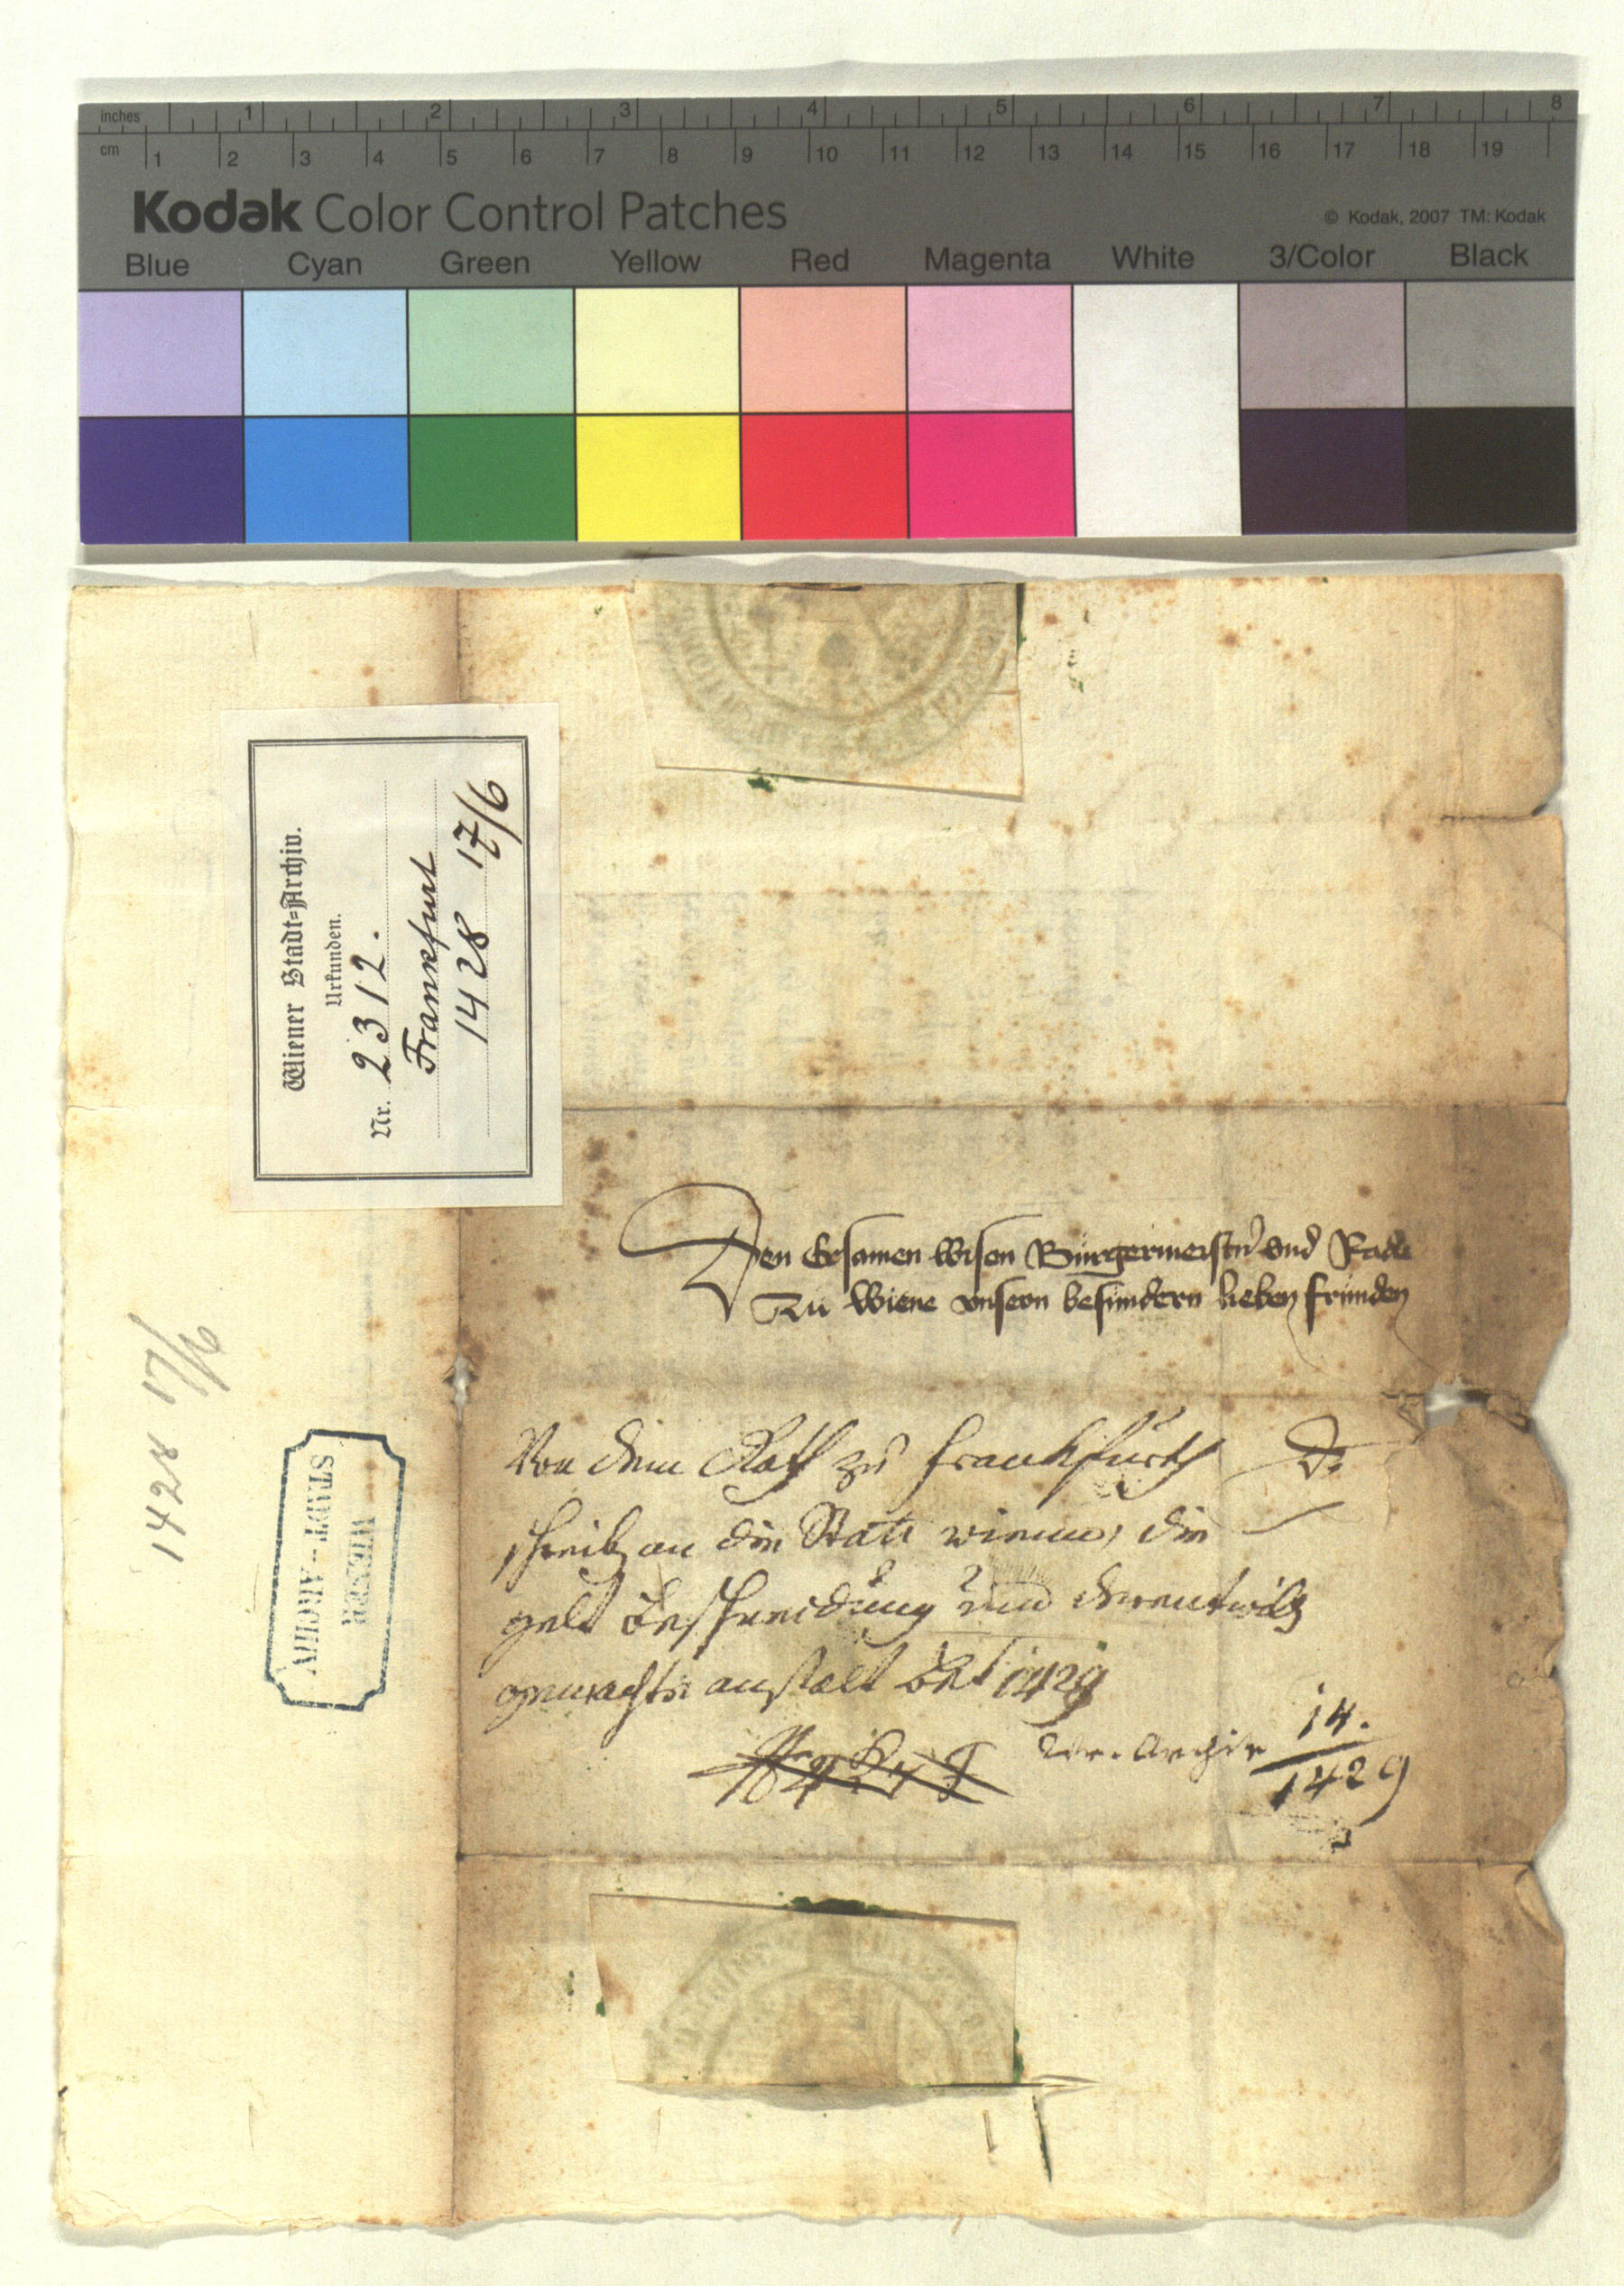 inches 1 2 3 4 5 6 7 8
cm 1 2 3 4 5 6 7 8 9 10 11 12 13 14 15 16 17 18 19
Kodak Color Control Patches
© Kodak, 2007 TM: Kodak
Blue Cyan Green Yellow Red Magenta White 3/Color Black
Wiener Stadt-Archiv.
Urkunden.
Nr. 2312.
Frankfurt
1428 17/6
Den Ersamen wisen Burgermeistern vnd Rade
Zu Wiene vnsern besundern lieben frunden
1428 17/6
WIENER
STADT-ARCHIV
Von dem Rath zu Franckfurth
schreib an die Statt wienn, die
gelt und
gemachte anstalt 1429
14.
1429